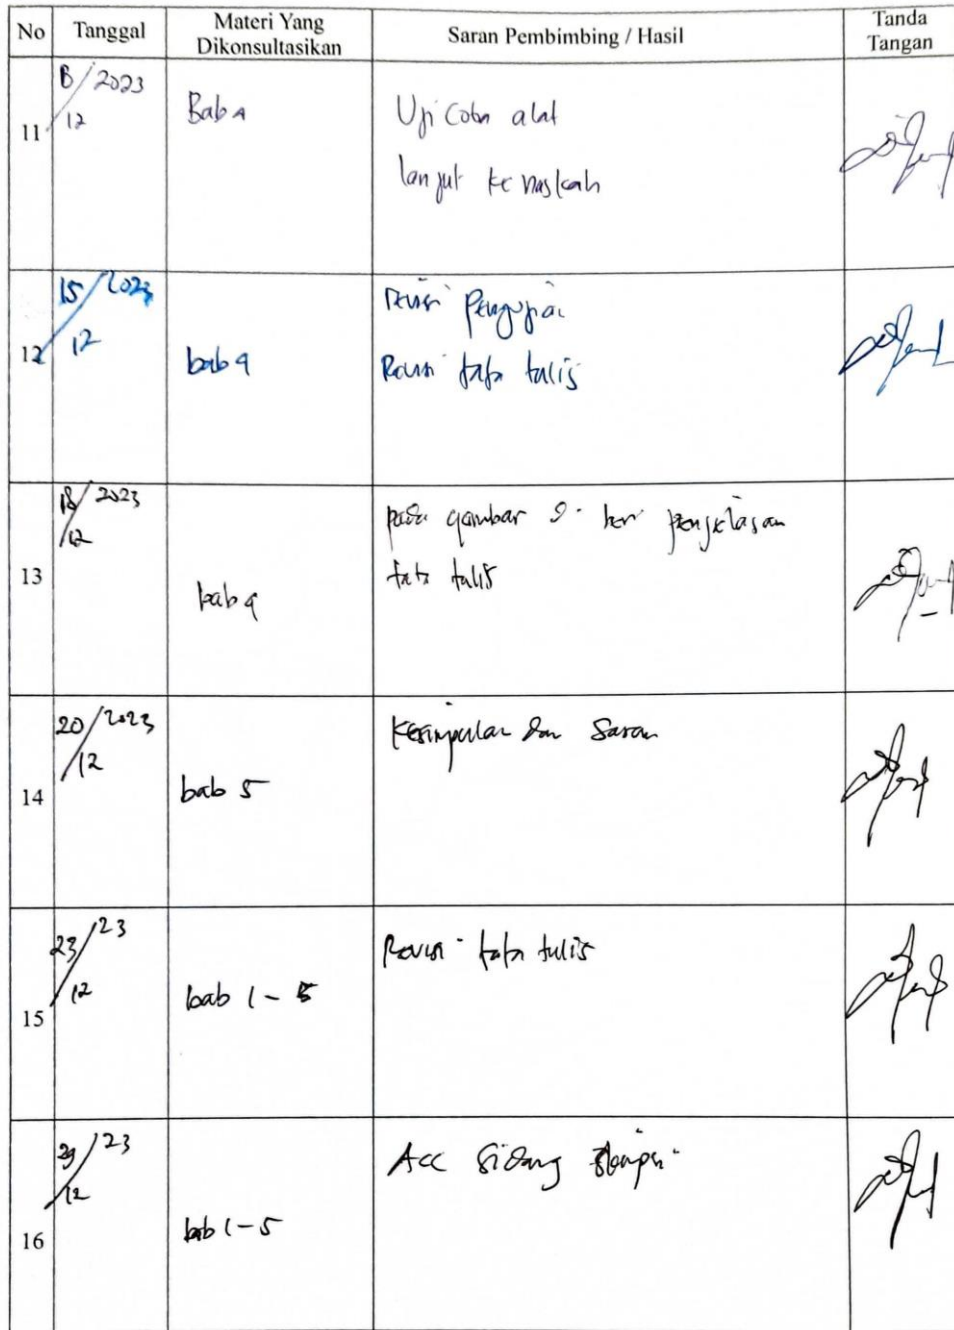 No Tanggal Materi Yang Dikonsultasikan Saran Pembimbing / Hasil Tanda Tangan
11 13/12 2023 Bab 4 Uji Coba alat
lanjut ke naskah
12 15/12 2023 bab 4 revisi Pengujian
Revisi tata tulis
13 18/12 2023 bab 4 pada gambar di beri penjelasan
tata tulis
14 20/12 2023 bab 5 Kesimpulan dan Saran
15 23/12 23 bab 1-5 Revisi tata tulis
16 29/12 23 bab 1-5 Acc Sidang skripsi